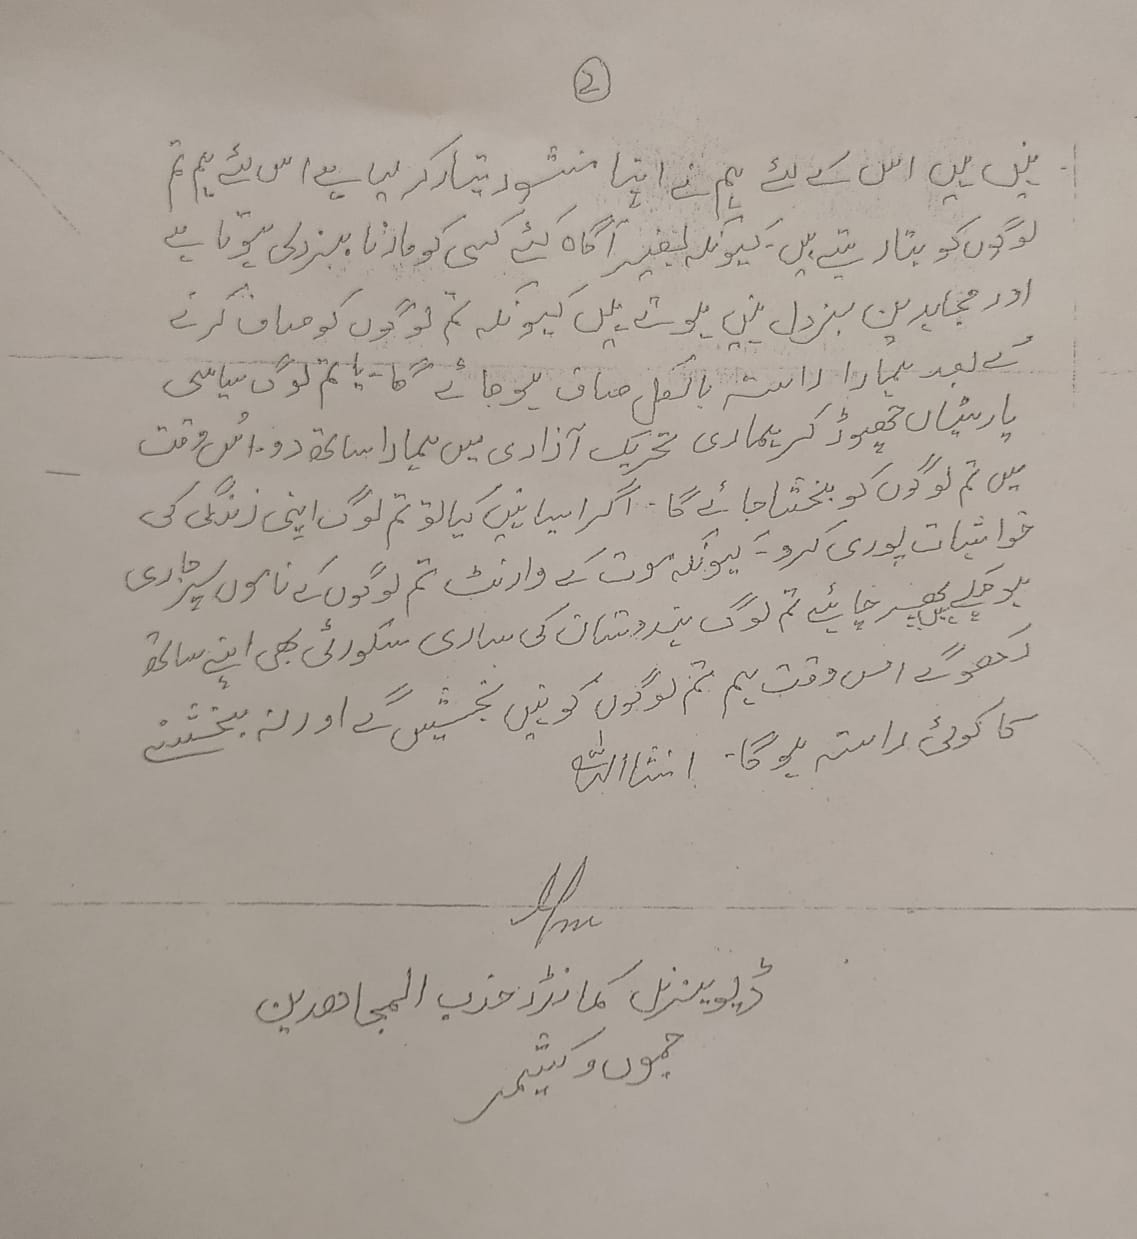 ②
نہیں ہیں اس کے لئے ہم نے اپنا منشور تیار کر لیا ہے اس لئے ہم تم
لوگوں کو بتا دیتے ہیں۔ کیونکہ بغیر آگاہ کئے کسی کو مارنا بزدلی ہوتا ہے
اور مجاہدین بزدل نہیں ہوتے ہیں کیونکہ تم لوگوں کو صاف کرنے
کے بعد ہمارا راستہ بالکل صاف ہو جائے گا۔ یا تم لوگ سیاسی
پارٹیاں چھوڑ کر ہماری تحریک آزادی میں ہمارا ساتھ دو۔ اُس وقت
میں تم لوگوں کو بخشا جائے گا۔ اگر ایسا نہیں کیا تو تم لوگ اپنی زندگی کی
خواہشات پوری کرو۔ کیونکہ موت کے وارنٹ تم لوگوں کے ناموں پر جاری
ہو چکے ہیں پھر چاہئے تم لوگ ہندوستان کی ساری سکورٹی بھی اپنے ساتھ
رکھو گے اس وقت ہم تم لوگوں کو نہیں بخشیں گے اور نہ بخشنے
کا کوئی راستہ ہو گا۔ انشااللہ
ڈیوینزل کمانڈر حذب المجاھدین
جموں و کشیمر